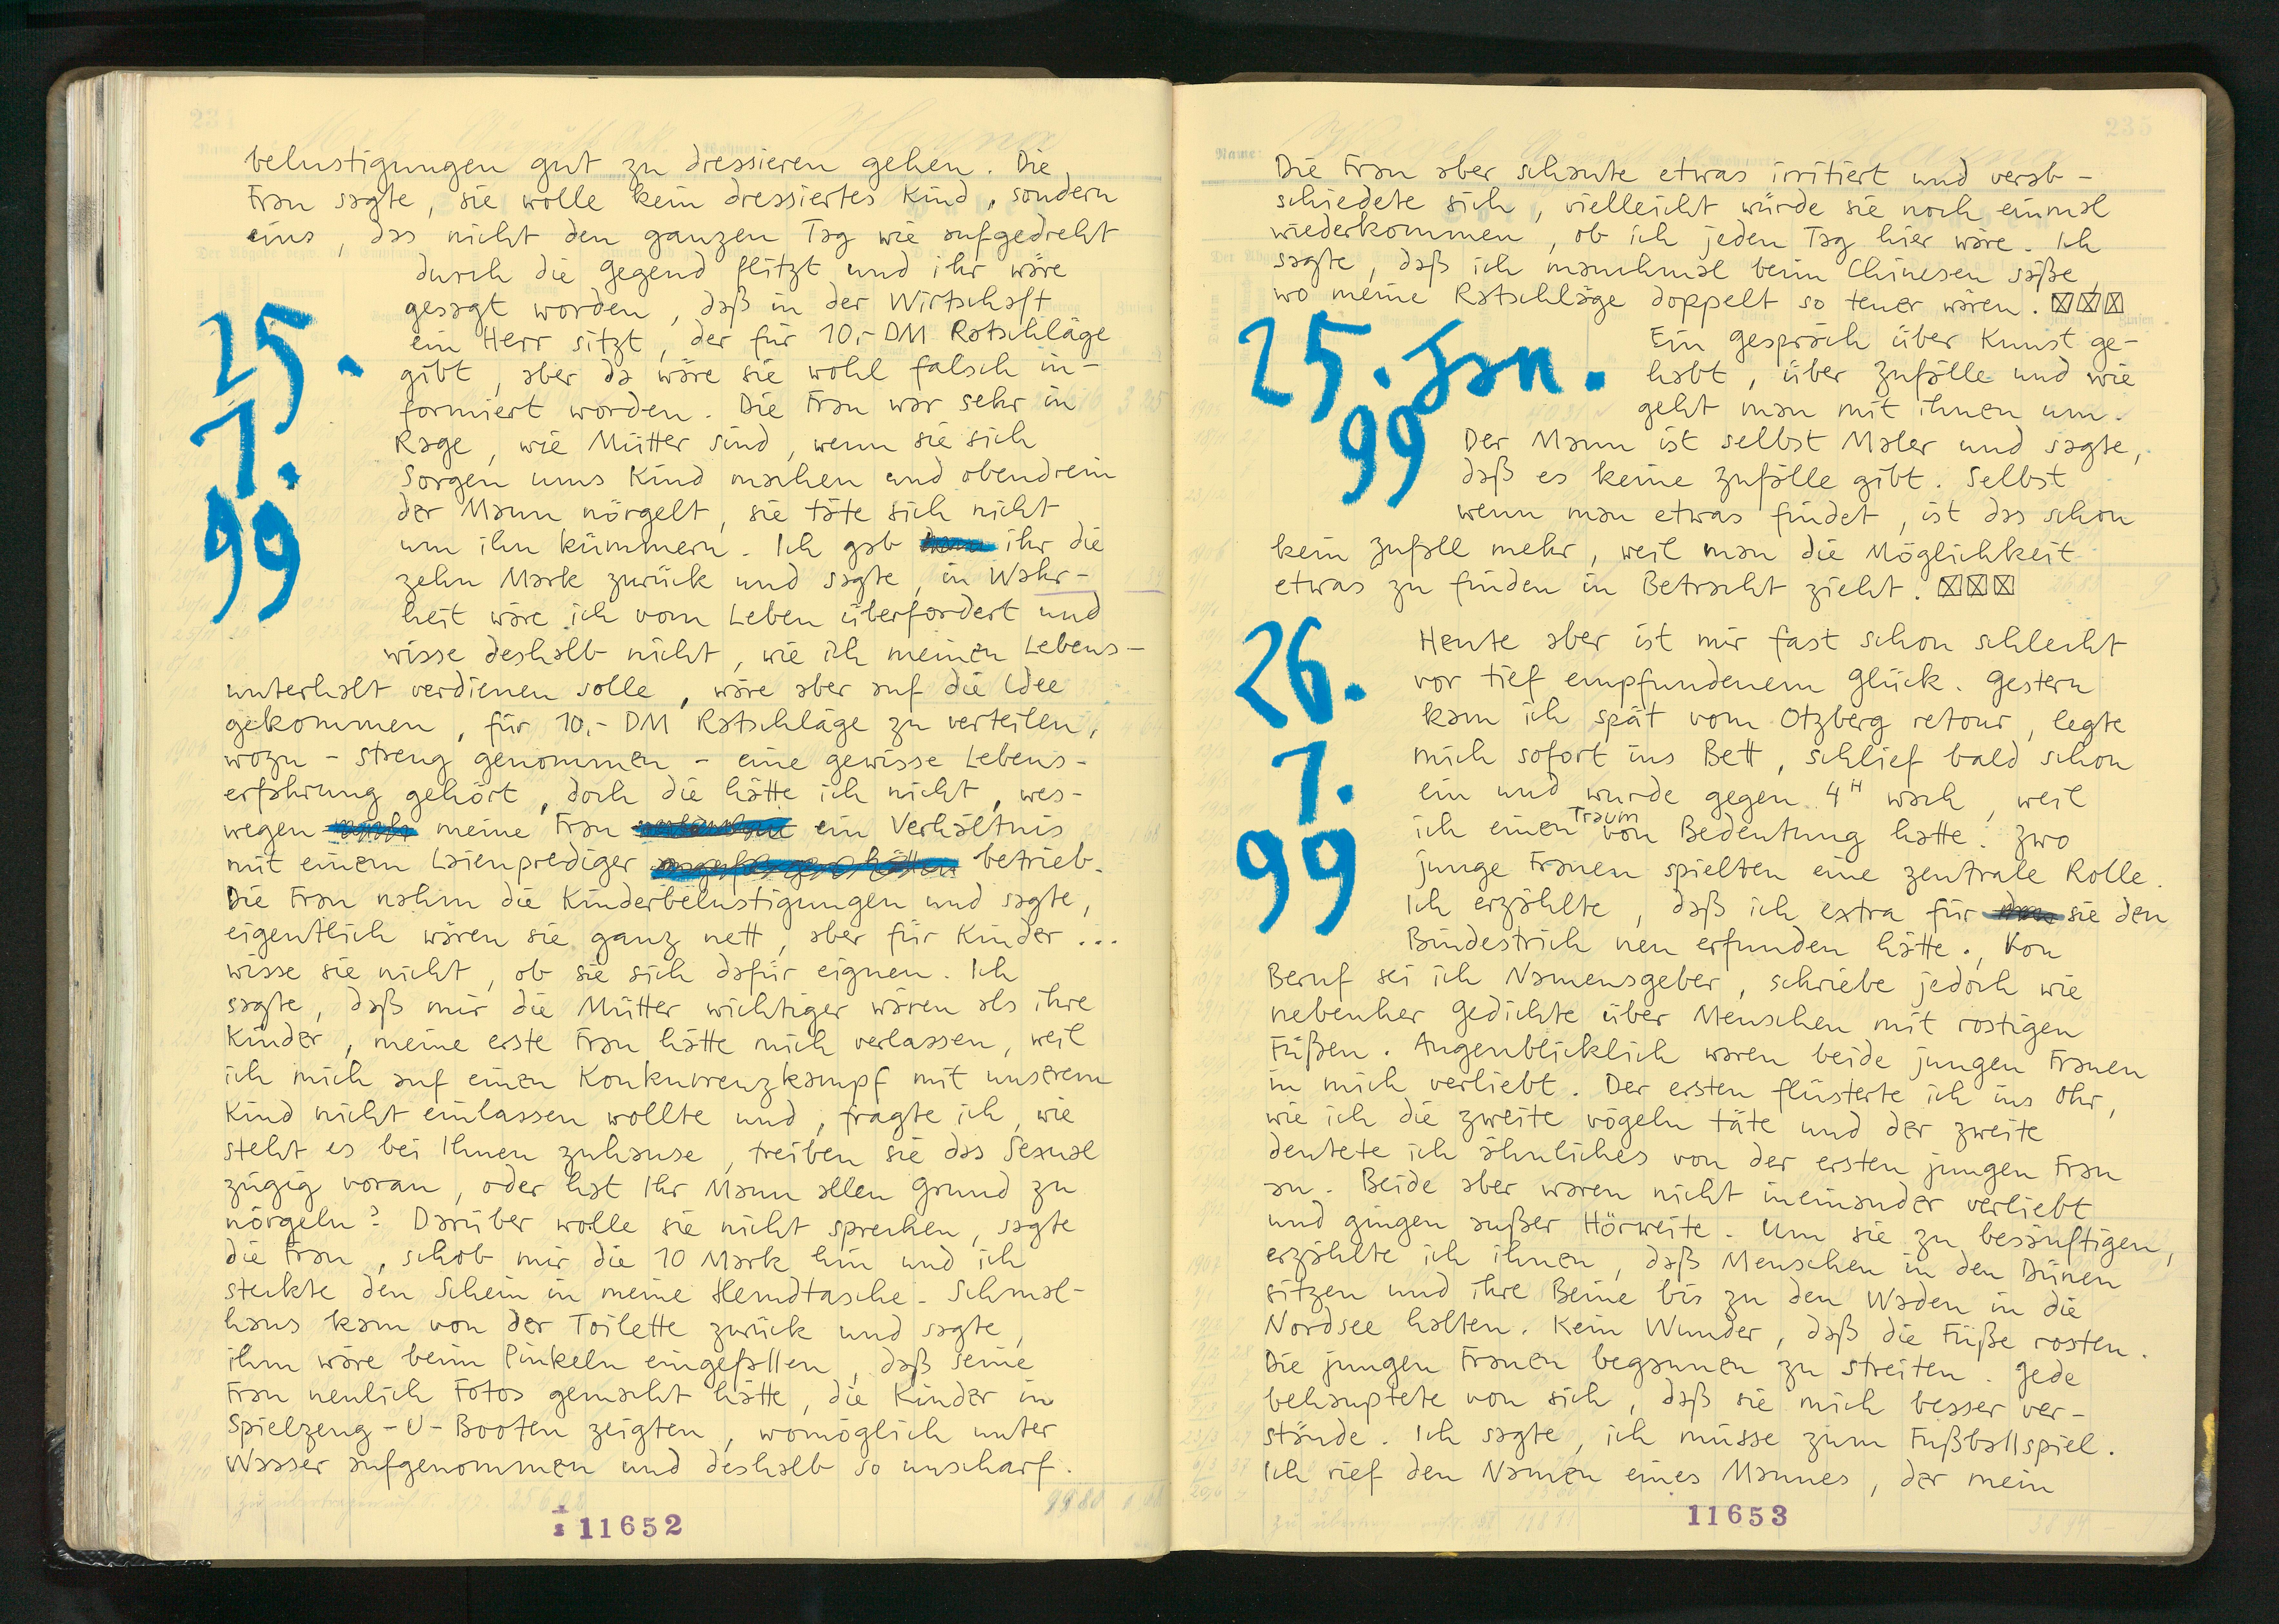 belustigungen gut zu dressieren gehen. Die
Frau sagte, sie wolle kein dressiertes Kind, sondern
eins, das nicht den ganzen Tag wie aufgedreht
durch die Gegend flitzt und ihr wäre
gesagt worden, daß in der Wirtschaft
ein Herr sitzt, der für 10,- DM Ratschläge
gibt, aber da wäre sie wohl falsch in-
formiert worden. Die Frau war sehr in
Rage, wie Mütter sind, wenn sie sich
Sorgen ums Kind machen und obendrein
der Mann nörgelt, sie täte sich nicht
um ihn kümmern. Ich gab ihr die
zehn Mark zurück und sagte, in Wahr-
heit wäre ich vom Leben überfordert und
wisse deshalb nicht, wie ich meinen Lebens-
25.
1.
99
unterhalt verdienen solle, wäre aber auf die Idee
gekommen, für 10,- DM Ratschläge zu verteilen,
wozu - streng genommen - eine gewisse Lebens-
erfahrung gehört, doch die hätte ich nicht, wes-
wegen meine Frau ein Verhältnis
mit einem Laienprediger betrieb.
Die Frau nahm die Kinderbelustigungen und sagte,
eigentlich wären sie ganz nett, aber für Kinder...
wisse sie nicht, ob sie sich dafür eignen. Ich
sagte, daß mir die Mütter wichtiger wären als ihre
Kinder, meine erste Frau hätte mich verlassen, weil
ich mich auf einen Konkurrenzkampf mit unserem
Kind nicht einlassen wollte und, fragte ich, wie
steht es bei Ihnen zuhause, treiben sie das Sexual
zügig voran, oder hat Ihr Mann allen Grund zu
nörgeln? Darüber wolle sie nicht sprechen, sagte
die Frau, schob mir die 10 Mark hin und ich
steckte den Schein in meine Hemdtasche. Schmal-
haus kam von der Toilette zurück und sagte,
ihm wäre beim Pinkeln eingefallen, daß seine
Frau neulich Fotos gemacht hätte, die Kinder in
Spielzeug-U-Booten zeigten, womöglich unter
Wasser aufgenommen und deshalb so unscharf.
11652
235
Name:
Die Frau aber schaute etwas irritiert und verab-
schiedete sich, vielleicht würde sie noch einmal
wiederkommen, ob ich jeden Tag hier wäre. Ich
sagte, daß ich manchmal beim Chinesen säße,
wo meine Ratschläge doppelt so teuer wären. ☒☒☒
25. Jan.
99
Ein Gespräch über Kunst ge-
habt, über Zufälle und wie
geht man mit ihnen um.
Der Mann ist selbst Maler und sagte,
daß es keine Zufälle gibt. Selbst
wenn man etwas findet, ist das schon
kein Zufall mehr, weil man die Möglichkeit
etwas zu finden in Betracht zieht. ☒☒☒
26.
1.
99
Heute aber ist mir fast schon schlecht
vor tief empfundenem Glück. Gestern
kam ich spät vom Otzberg retour, legte
mich sofort ins Bett, schlief bald schon
ein und wurde gegen 4H wach, weil
ich einen Traum von Bedeutung hatte. Zwo
junge Frauen spielten eine zentrale Rolle.
Ich erzählte, daß ich extra für sie den
Bindestrich neu erfunden hätte. Von
Beruf sei ich Namensgeber, schriebe jedoch wie
nebenher Gedichte über Menschen mit rostigen
Füßen. Augenblicklich waren beide jungen Frauen
in mich verliebt. Der ersten flüsterte ich ins Ohr,
wie ich die zweite vögeln täte und der zweite
deutete ich ähnliches von der ersten jungen Frau
an. Beide aber waren nicht ineinander verliebt
und gingen außer Hörweite. Um sie zu besänftigen,
erzählte ich ihnen, daß Menschen in den Dünen
sitzen und ihre Beine bis zu den Waden in die
Nordsee halten. Kein Wunder, daß die Füße rosten.
Die jungen Frauen begannen zu streiten. Jede
behauptete von sich, daß sie mich besser ver-
stände. Ich sagte, ich müsse zum Fußballspiel.
Ich rief den Namen eines Mannes, der mein
11653